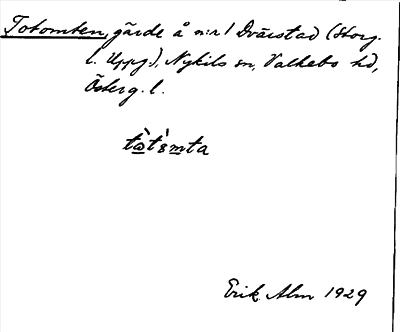 Totomten, gärde å n:r 1 Dvärstad (Storg.
l. Uppg.), Nykils sn, Valkebo hd,
Österg. l.
tòtòmta
Erik Alm 1929